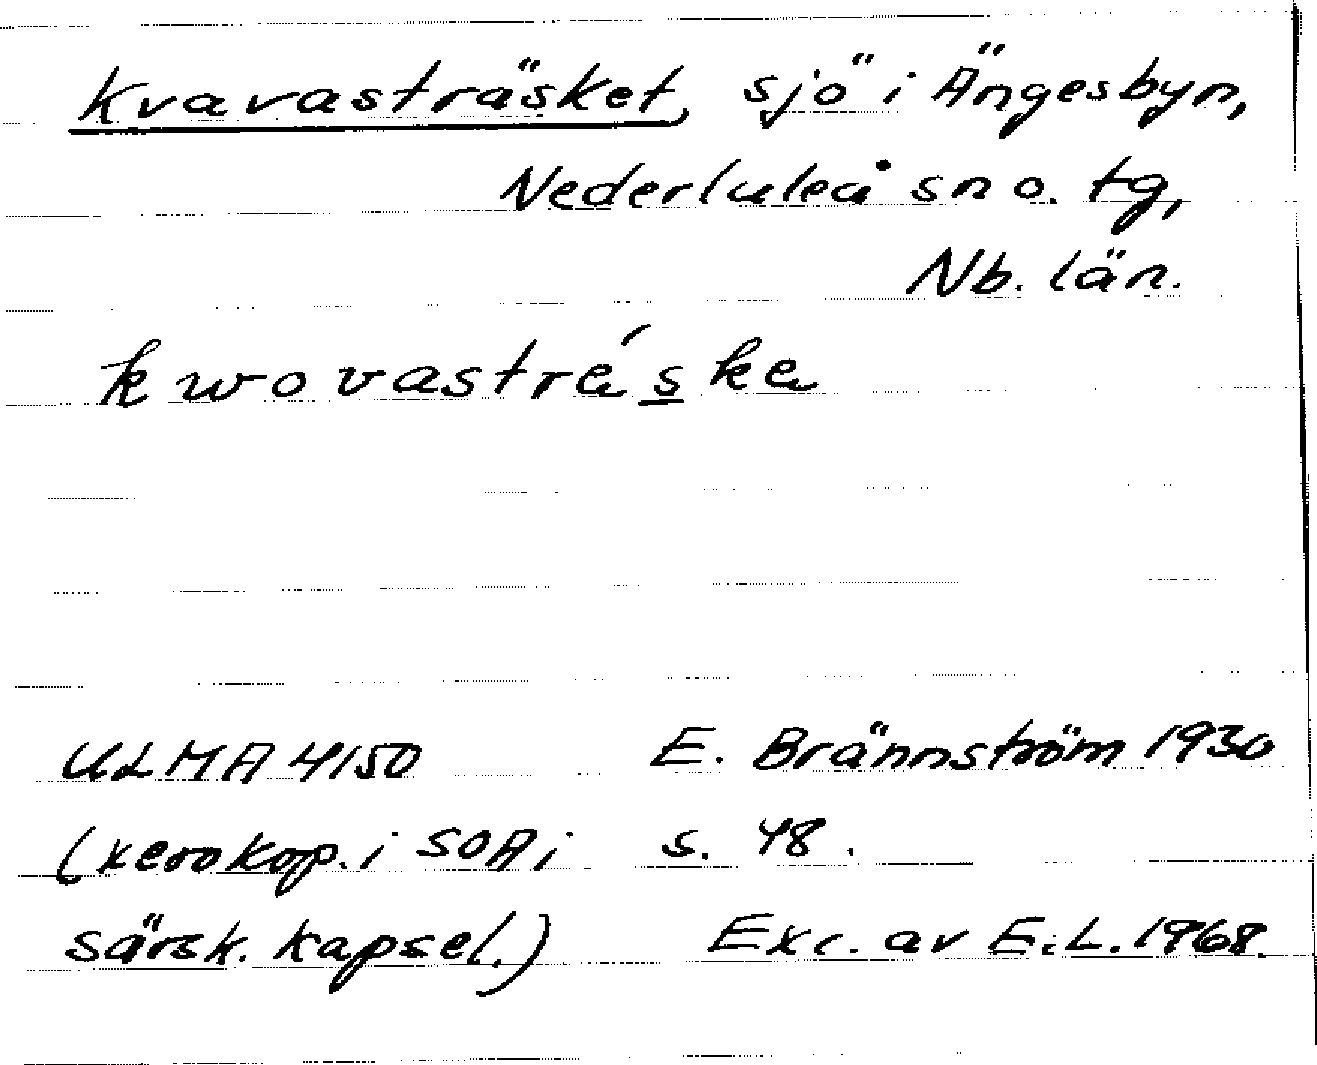 Kvavasträsket, sjö i Ängesbyn,
Nederluleå sn o. tg,
Nb. län.
kwovastré̱ske
ULMA 4150 E. Brännström 1930
(xerokop. i SOA i s. 48.
särsk. kapsel.) Exc. av E.L. 1968.